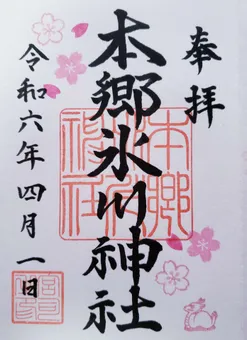 奉拝
本郷氷川神社
令和六年四月一日
本郷氷川神社